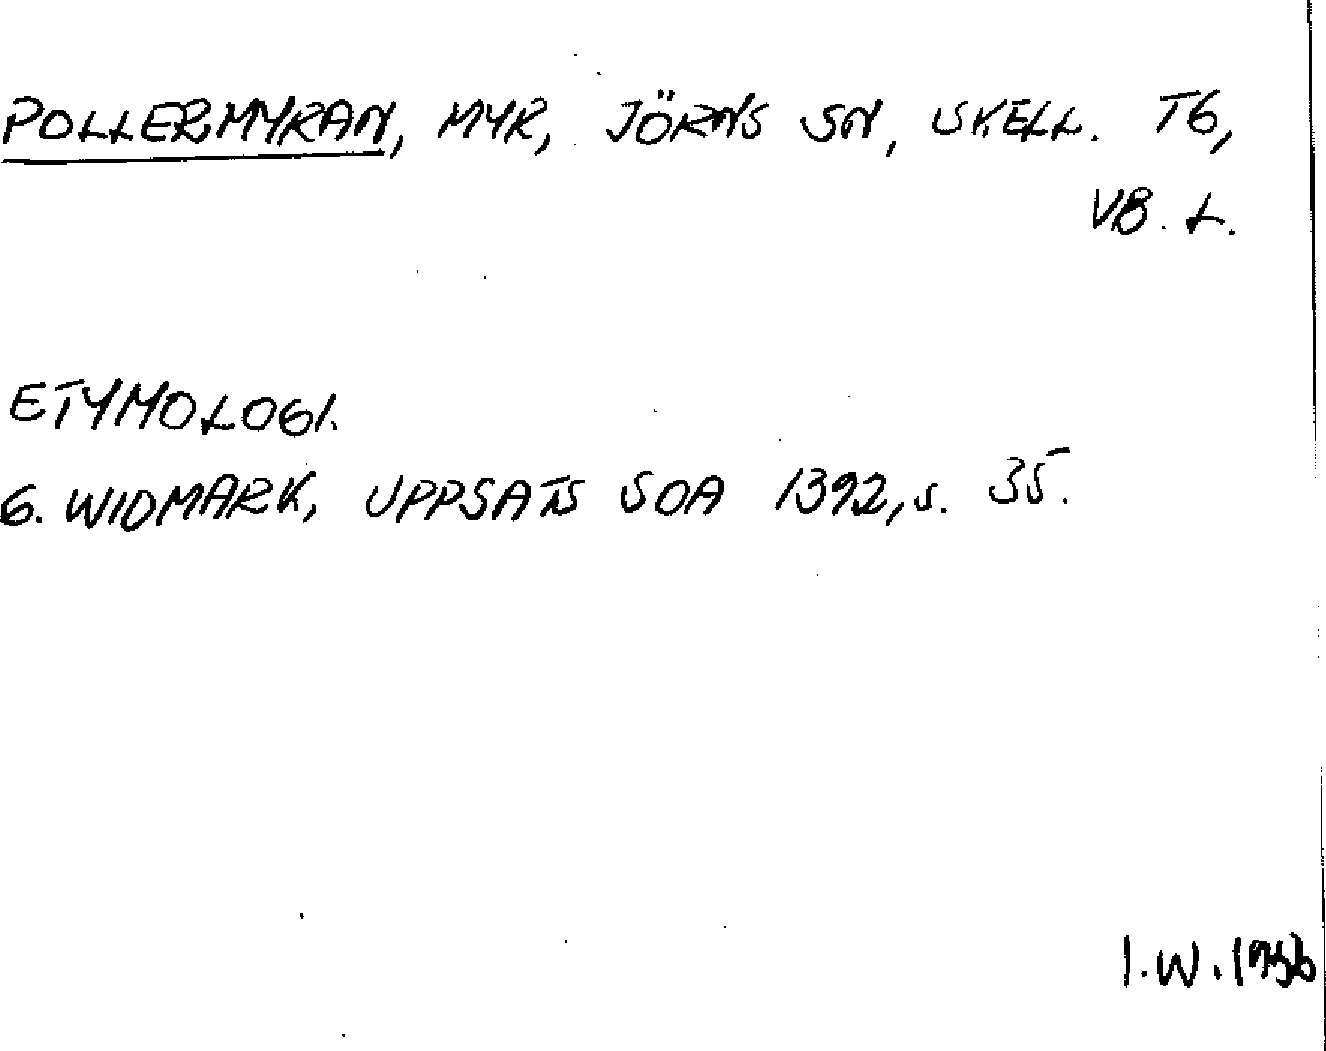 POLLERMYRAN, MYR, JÖRNS SN, SKELL. TG,
VB. L.
ETYMOLOGI.
G. WIDMARK, UPPSATS SOA 1392, S. 35.
I.W.